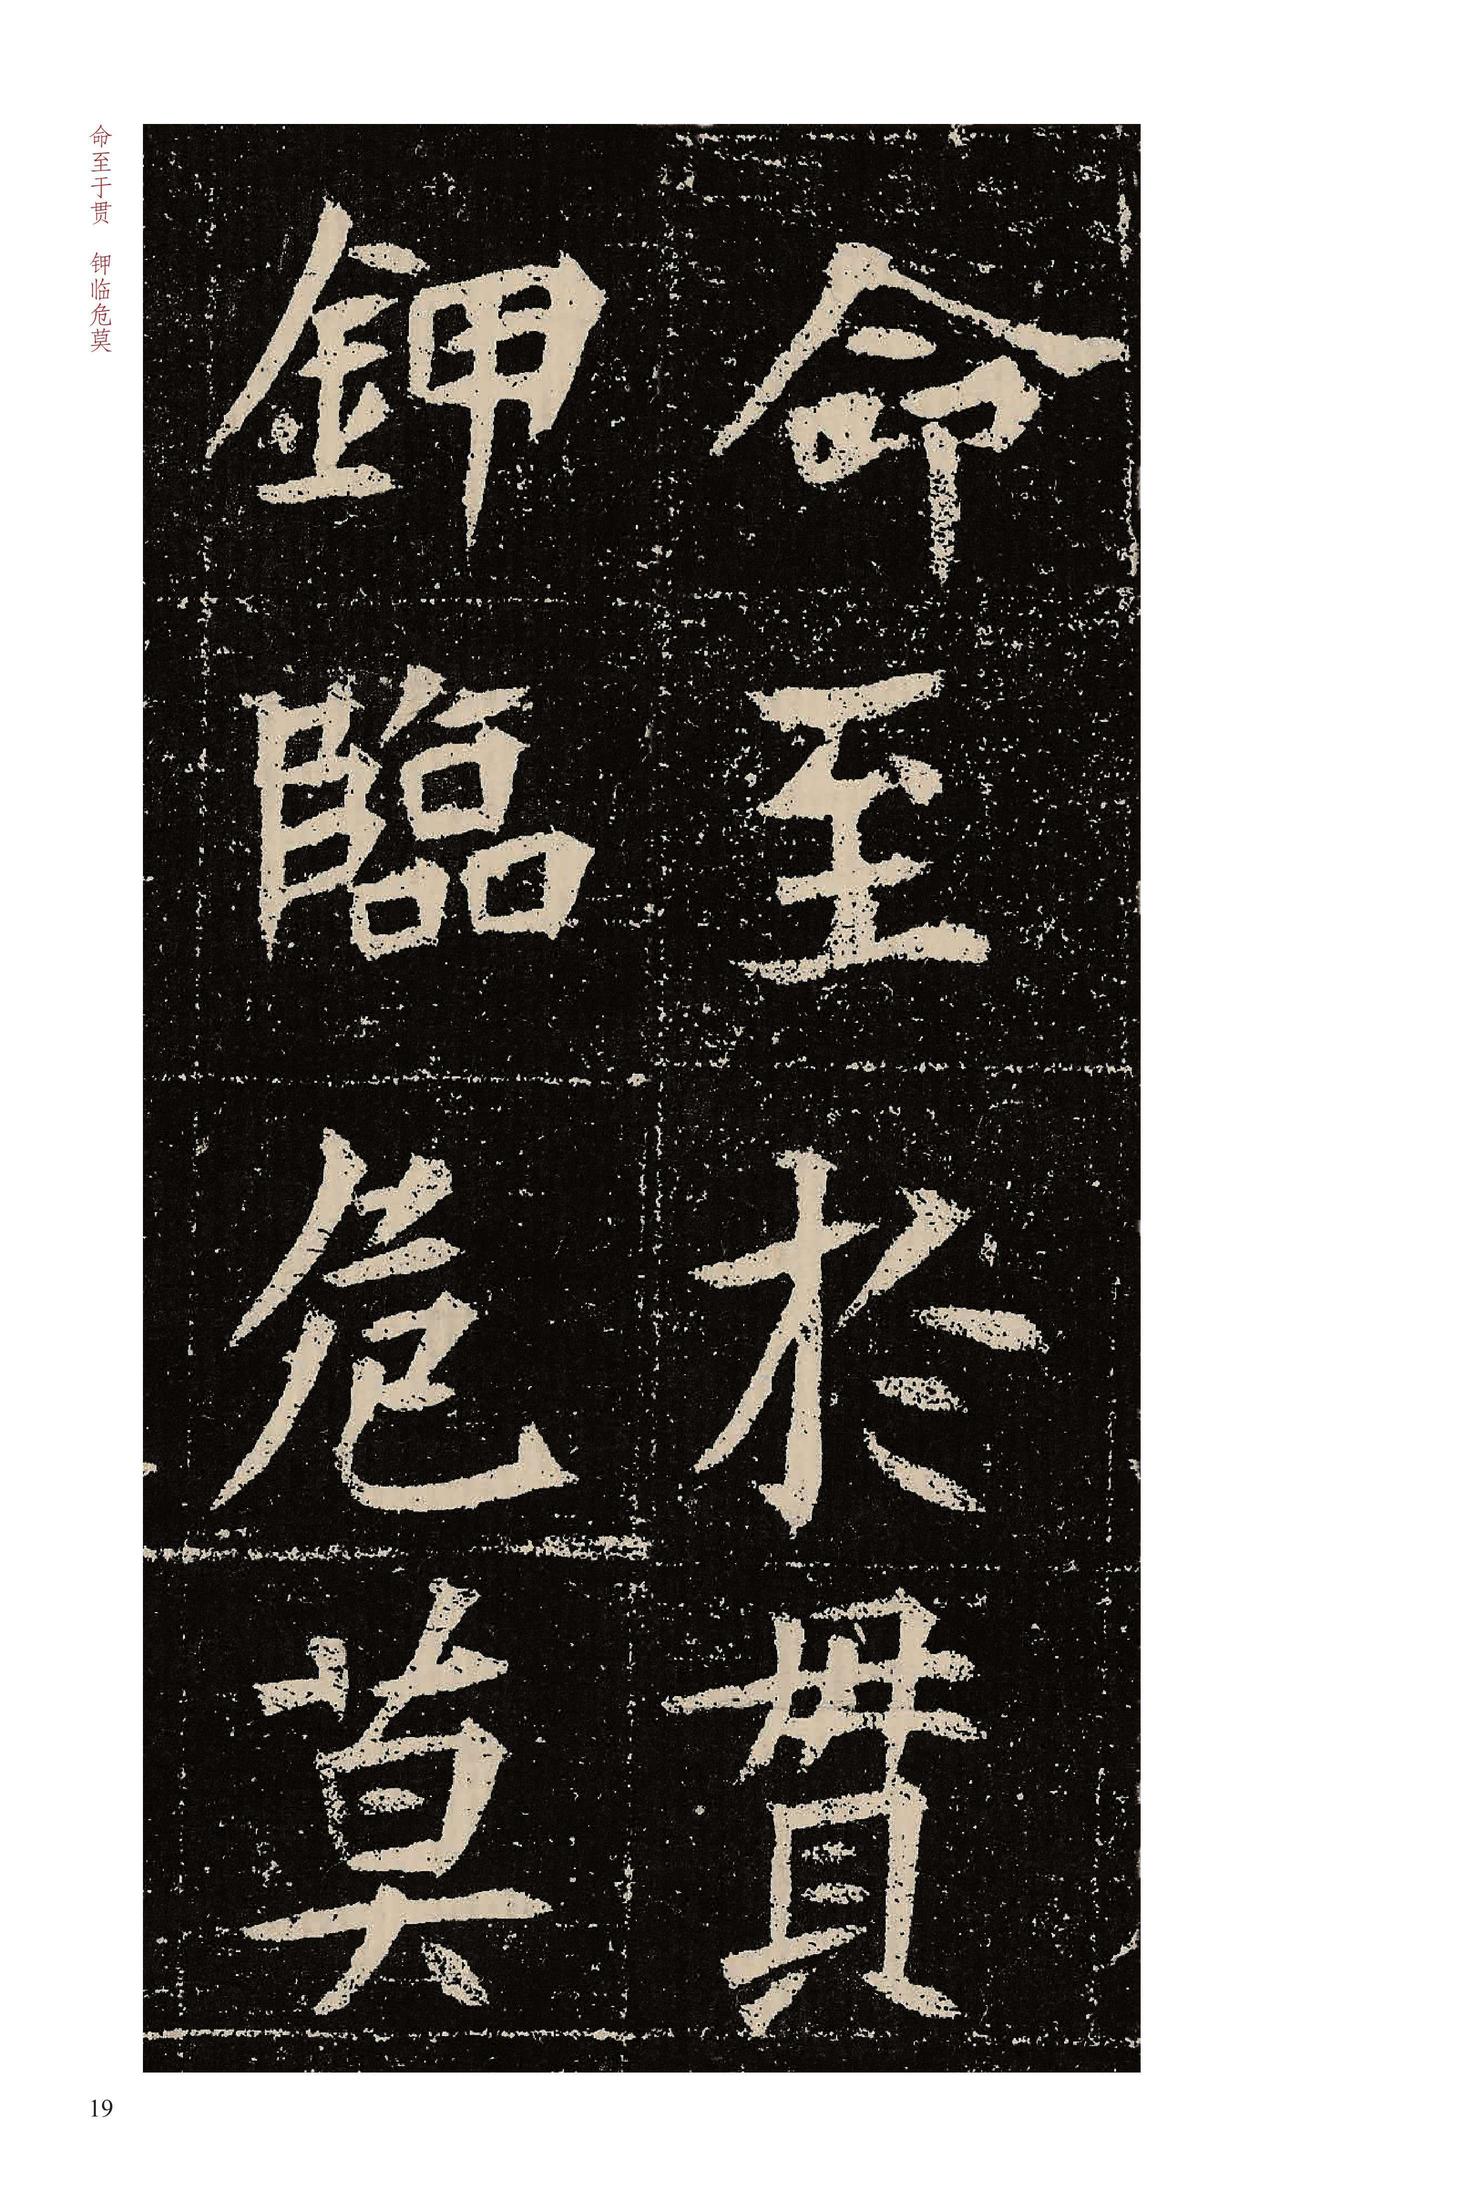 命至於貫
鉀臨危莫
命至于贯 钾临危莫
19